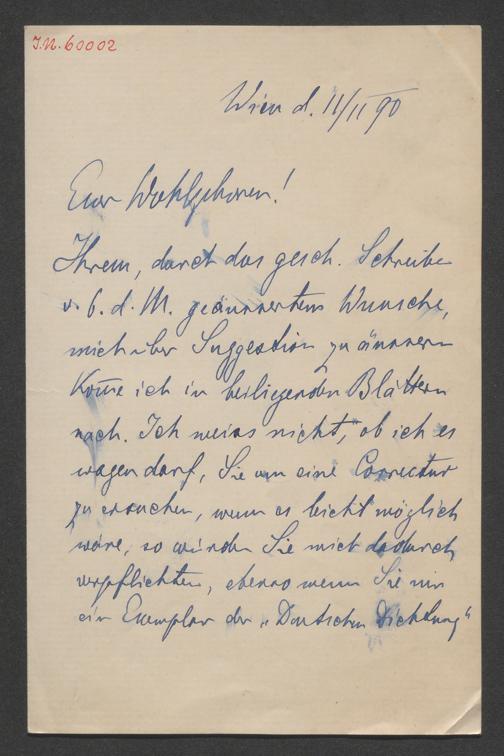 I.N. 60002
Wien d. 11/11 90
Euer Wohlgeboren!
Ihrem, durch das gesch. Schreiben
v. 6. d. M. geäusserten Wunsche,
mich über Suggestion zu äussern
kom̄e ich in beiliegenden Blättern
nach. Ich weiss nicht, ob ich es
wagen darf, Sie um eine Correctur
zu ersuchen, wenn es leicht möglich
wäre, so würden Sie mich dadurch
verpflichten, ebenso wenn Sie mir
ein Exemplar der „Deutschen Dichtung"